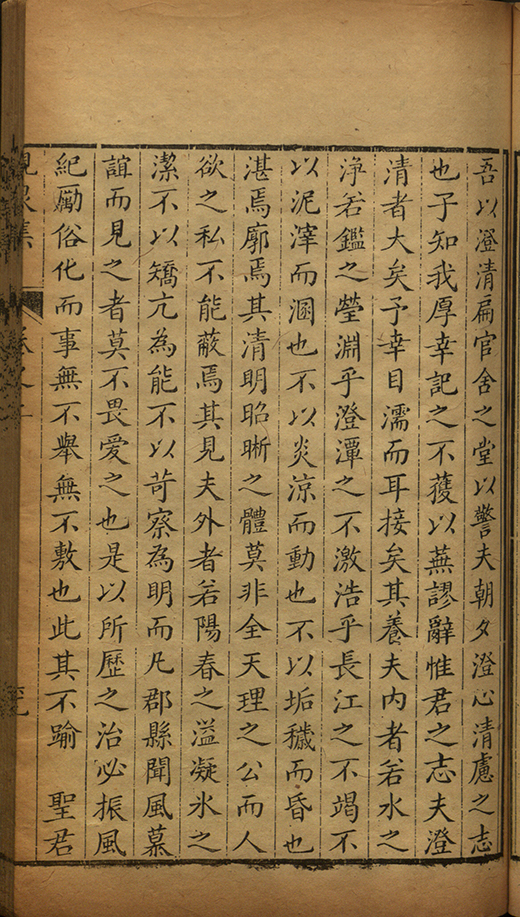 吾以澄清扁官舍之堂以警夫朝夕澄心清慮之志
也子知我厚幸記之不獲以蕪謬辭惟君之志夫澄
清者大矣予幸目濡而耳接矣其養夫内者若水之
浄若鑑之瑩淵乎澄潭之不激浩乎長江之不竭不
以泥滓而溷也不以炎涼而動也不以垢穢而昏也
湛焉廓焉其清明昭晣之體莫非全天理之公而人
欲之私不能蔽焉其見夫外者若陽春之溢凝氷之
潔不以矯亢為能不以苛察為明而凡郡縣聞風慕
誼而見之者莫不畏愛之也是以所歷之治必振風
紀勵俗化而事無不舉無不敷也此其不踰 聖君